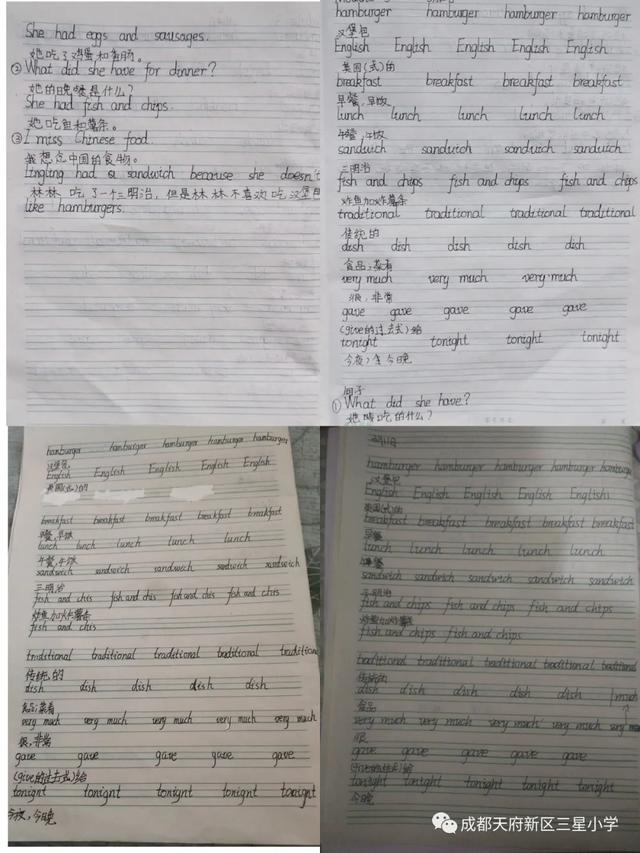 She had eggs and sausages.
她吃了鸡蛋和香肠。
② What did she have for dinner?
她的晚餐是什么?
She had fish and chips.
她吃鱼和薯条。
③ I miss Chinese food.
我想念中国的食物。
Lingling had a sandwich because she doesn't
林林吃了一个三明治,但是林林不喜欢吃汉堡包
like hamburgers.
hamburger hamburger hamburger hamburger
汉堡包
English English English English English
英国(式)的
breakfast breakfast breakfast breakfast
早餐,早饭
lunch lunch lunch lunch lunch
午餐,午饭
sandwich sandwich sandwich sandwich
三明治
fish and chips fish and chips fish and chips
炸鱼加炸薯条
traditional traditional traditional traditional
传统的
dish dish dish dish dish
食品,菜肴
very much very much very much
很,非常
gave gave gave gave gave
(give的过去式)给
tonight tonight tonight tonight
今夜,在今晚
句子
① What did she have?
她晚吃的什么?
hamburger hamburger hamburger hamburger hamburger
汉堡包
English English English English English
英国(式)的
breakfast breakfast breakfast breakfast breakfast
早餐,早饭
lunch lunch lunch lunch lunch
午餐,午饭
sandwich sandwich sandwich sandwich sandwich
三明治
fish and chis fish and chis fish and chis fish and chis
炸鱼加炸薯条
fish and chis
traditional traditional traditional traditional traditional
传统的
dish dish dish dish dish
食品,菜肴
very much very much very much very much very much
很,非常
gave gave gave gave gave
(give的过去式)给
tonignt tonignt tonignt tonignt tonignt
今夜,今晚
hamburger hamburger hamburger hamburger hamburger
汉堡包
English English English English English
英国(式)的
breakfast breakfast breakfast breakfast breakfast
早餐
lunch lunch lunch lunch lunch
午餐
sandwich sandwich sandwich sandwich sandwich
三明治
fish and chips fish and chips fish and chips
炸鱼加炸薯条
fish and chips fish and chips
traditional traditional traditional traditional traditional
传统的
dish dish dish dish dish much
食品
very much very much very much very much very
很
gave gave gave gave gave
(give的过去式)给
tonight tonight tonight tonight tonight
今晚
成都天府新区三星小学